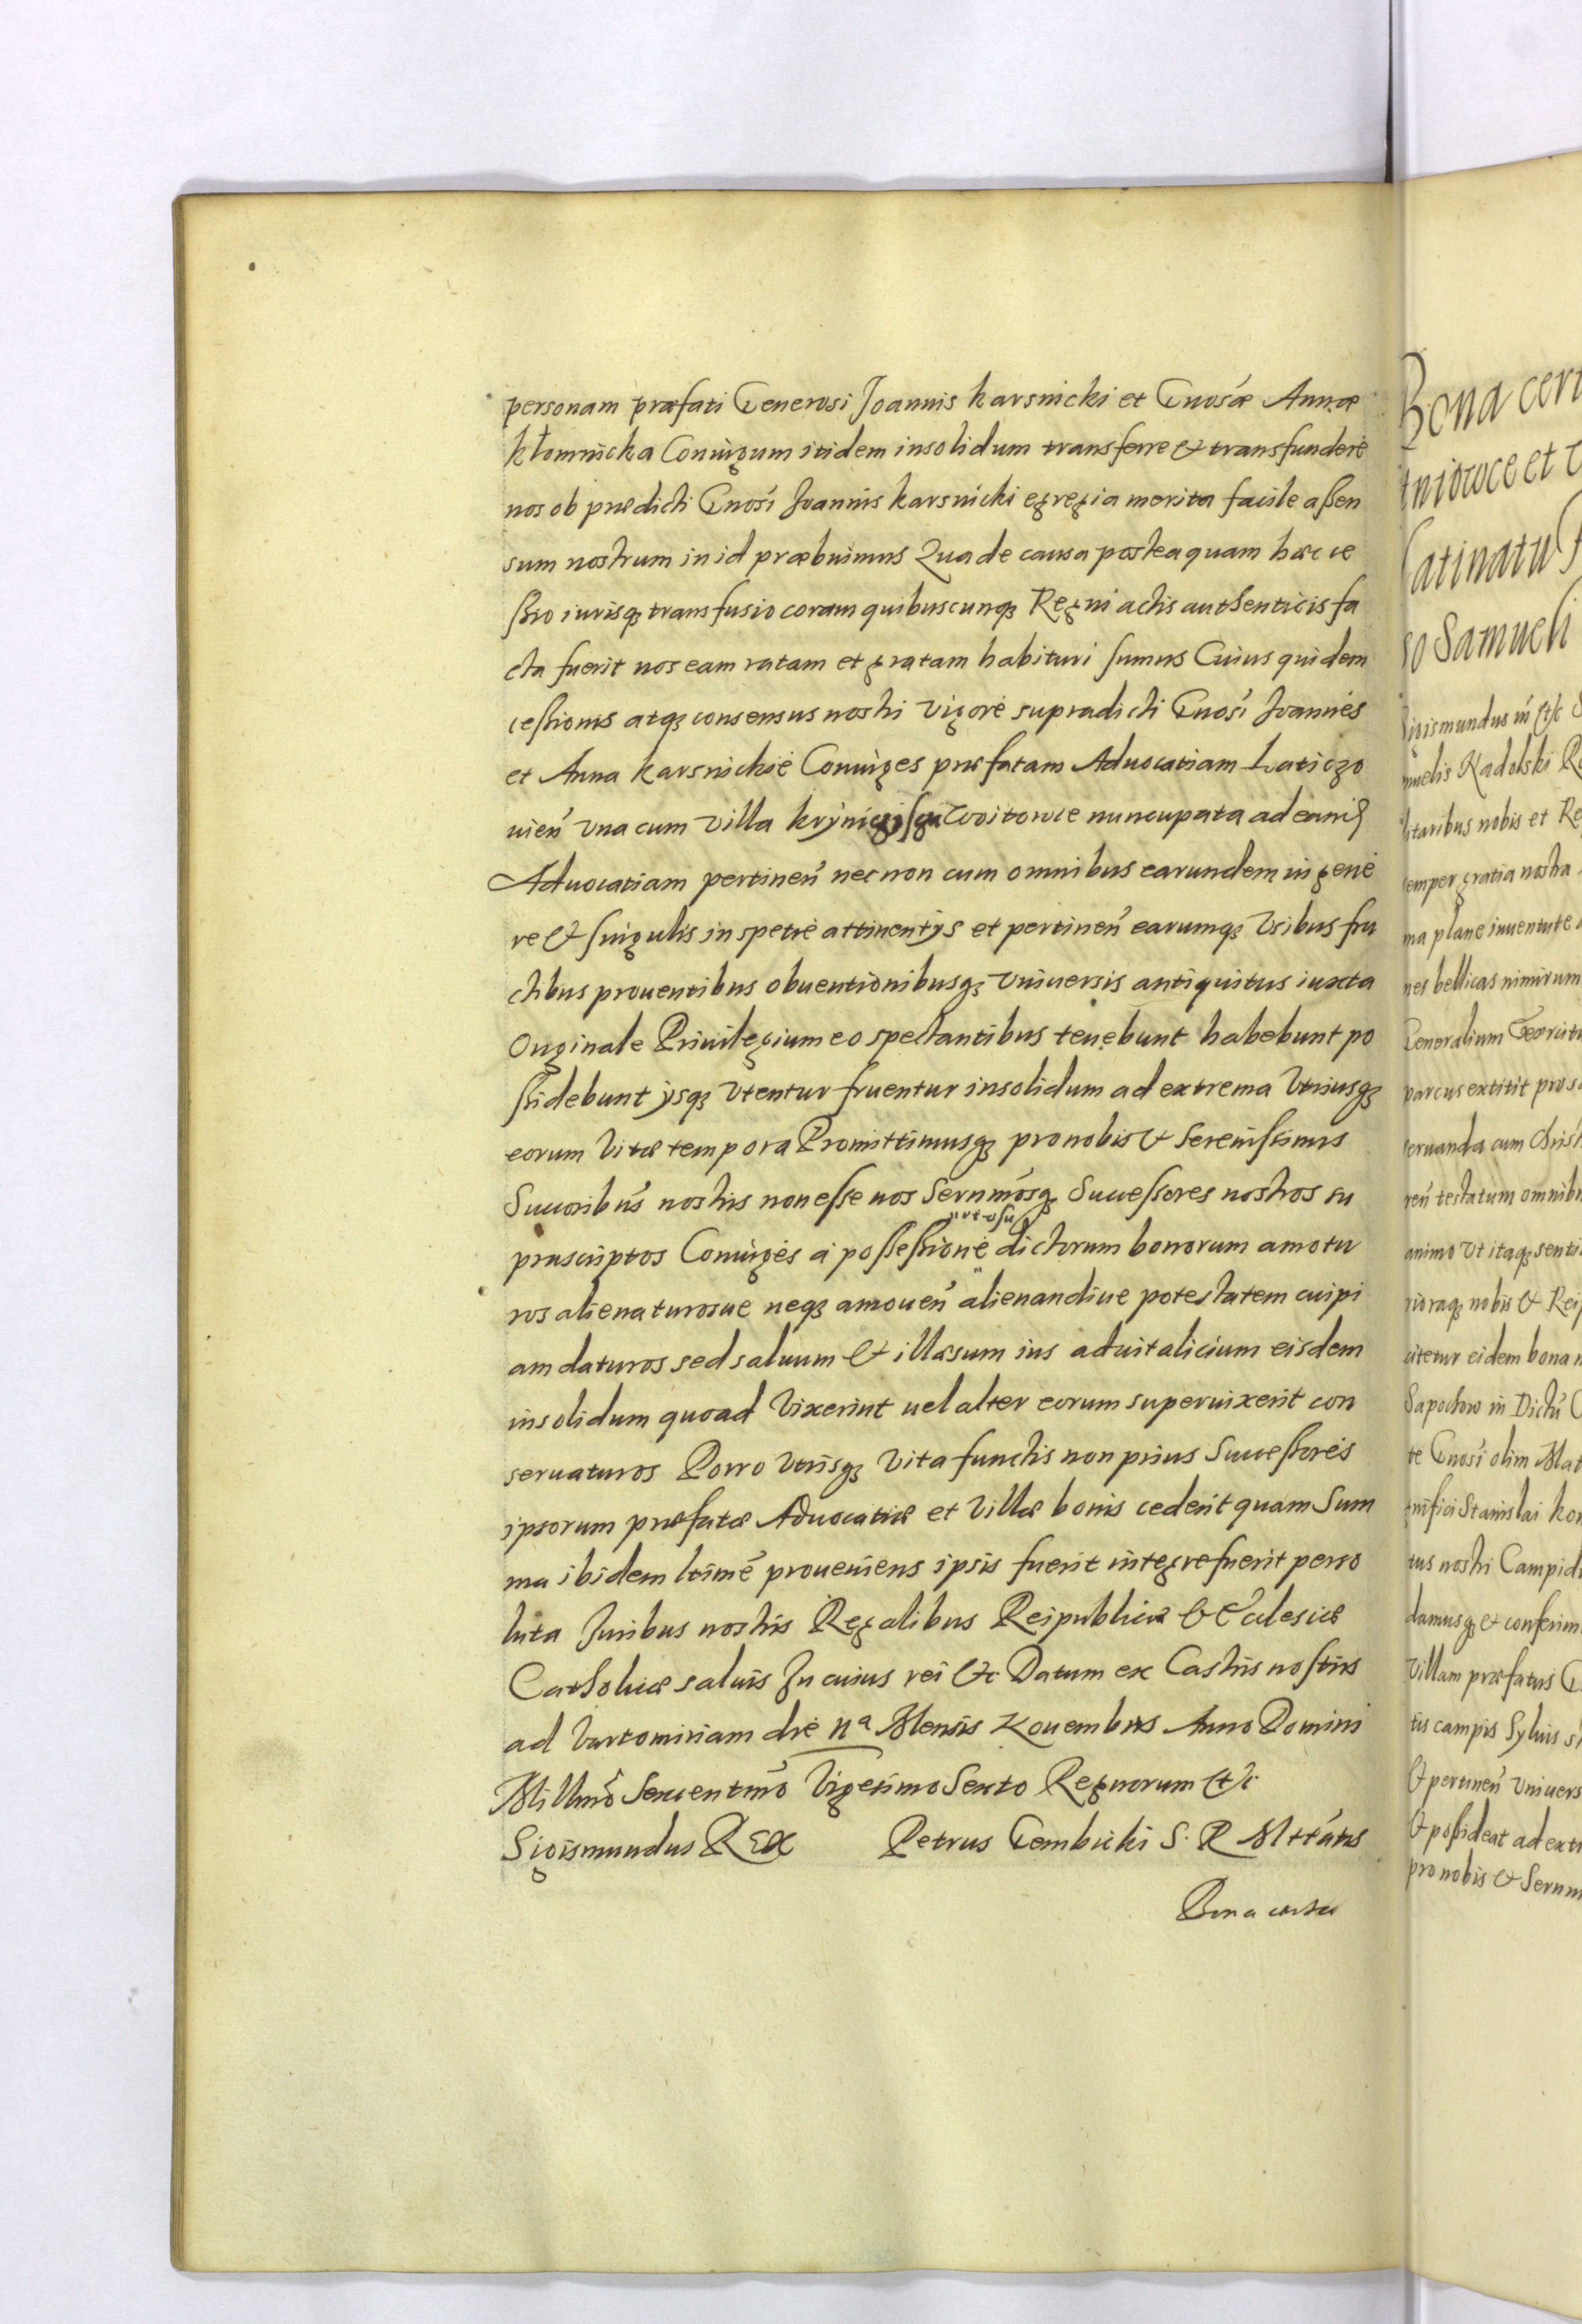 personam præfati Generosi Joannis karsnicki et Gnosæ Annæ
kłomnicka Coniugum itidem insolidum transferre & transfundere
nos ob prædicti Gnosi Joannis karsnicki egregia merita facile aßen
sum nostrum in id præbuimus Qua de causa posteaquam hæc ce
ßio iurisq3 transfusio coram quibuscunq3 Regni actis authenticis fa
cta fuerit nos eam ratam et gratam habituri sumus Cuius quidem
ceßionis atq3 consensus nostri vigore supradicti Gnosi Joannes
et Anna karsnickie Coniuges præfatam Aduocatiam Laticzo
uien̄ vna cum villa Woitowce nuncupata ad eand
Aduocatiam pertinen̄ nec non cum omnibus earundem in gene
re & singulis in spetie attinentys et pertinen̄ earumq3 vsibus fru
ctibus prouentibus obuentionibusq3 vniuersis antiquitus iuxta
Originale Priuilegium eo spectantibus tenebunt habebunt po
ßidebunt ysq3 vtentur fruentur insolidum ad extrema vtriusq3
eorum vitæ tempora Promittimusq3 pro nobis & Serenißimis
Succoribus nostris non eße nos Sernmosq3 Succeßores nostros su
prascriptos Coniuges a poßeßione dictorum bonorum amotu
ros alienaturosue neq3 amouen̄ alienandiue potestatem cuipi
am daturos sed saluum & illæsum ius aduitalicium eisdem
insolidum quoad vixerint uel alter eorum superuixerit con
seruaturos Porro vtrisq3 vita functis non prius Succeßores
ipsorum præfatæ Aduocatiæ et villæ bonis cedent quam Sum
ma ibidem ltime proueniens ipsis fuerit integre fuerit perso
luta Juribus nostris Regalibus Reipublicæ & Ecclesiæ
Catholicæ saluis In cuius rei &c Datum ex Castris nostris
ad die IIa Mensis Nouembris Anno Domini
Millmo Sexcentmo Vigesimo Sexto Regnorum &c
Sigismundus REX Petrus Gembicki S. R Mttatis
Bona certa
Bona cert
tniowce et
latinatu
so Samueli
Sigismundus in &c
muelis Kadolski
litaribus nobis et Re
semper gratia nostra
ma plane iuuentute
nes bellicas nimirum
Generalium Exercitu
parcus extitit
seruanda cum Christ
ren̄ testatum omnibu
animo Vt itaq3 senti
rioraq3 nobis & Reip
citetur eidem bona
Sapochow in Dictu
te Gnosi olim Mat
gnifici Stanislai kon
tus nostri Campid
damusq3 & conferim
villam præfatus G
tis campis Syluis
& pertinen̄ vniuers
& poßideat ad extr
pro nobis & Sernm